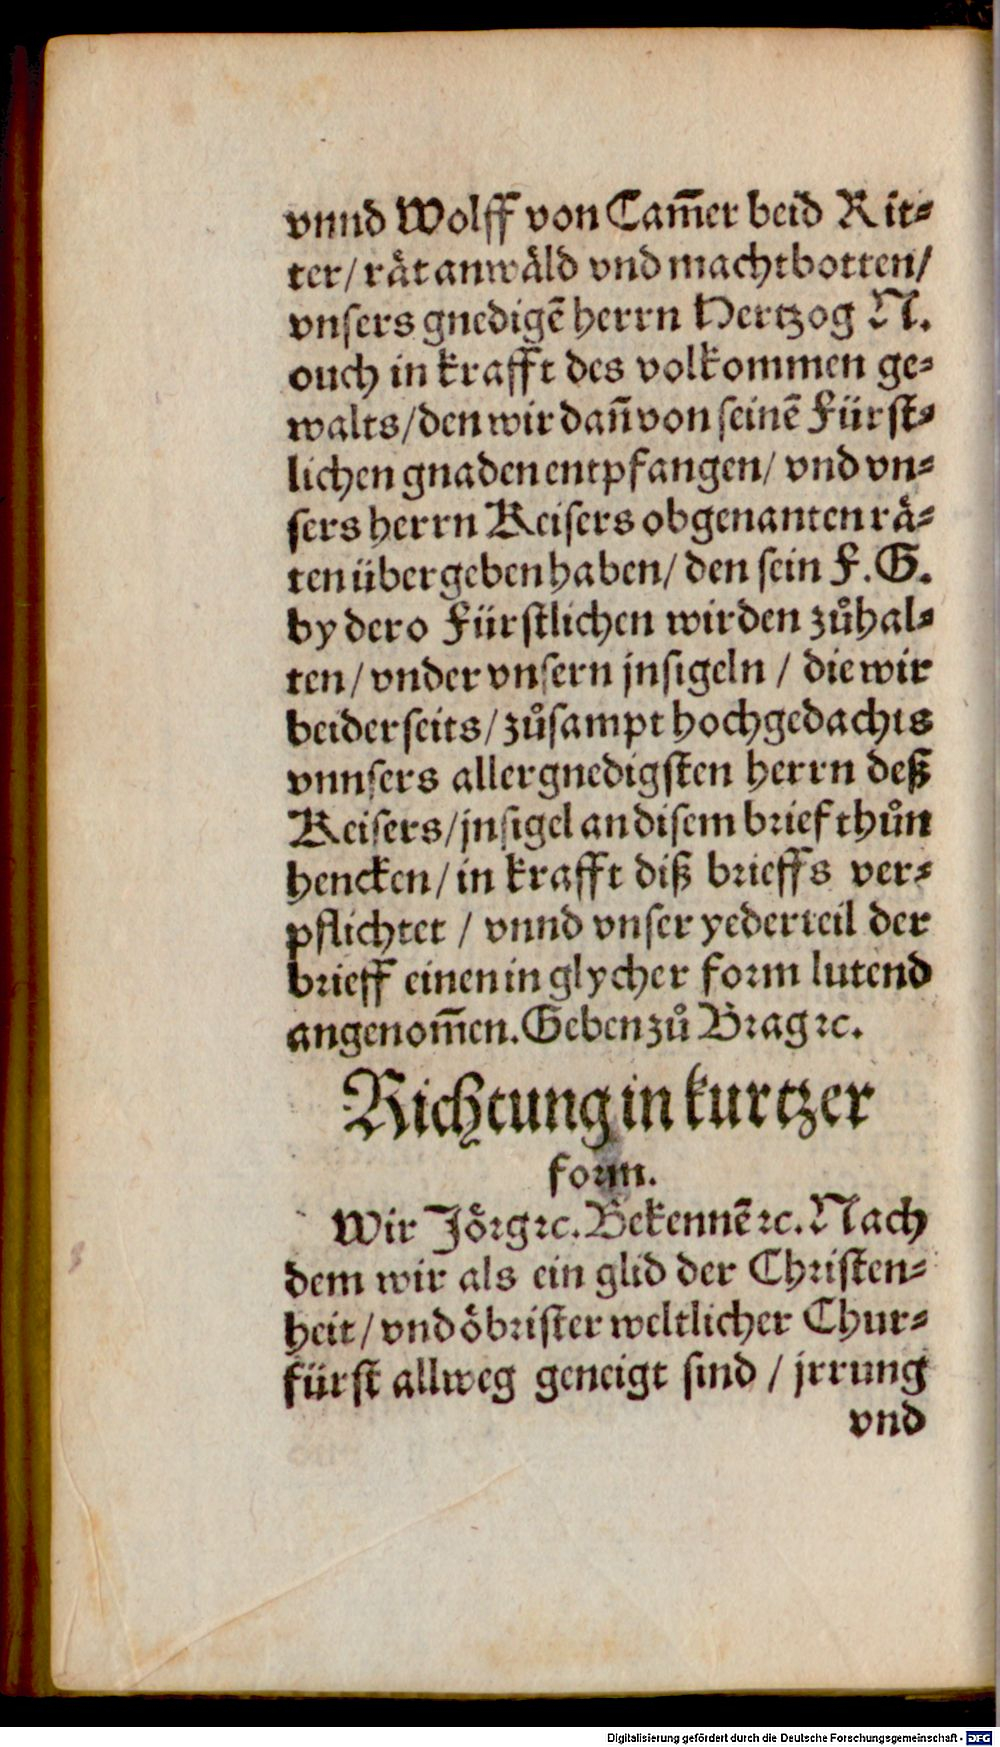 vnnd Wolff von Cam̄er beid Rit⸗
ter/ råt anwåld vnd machtbotten/
vnsers gnedigē herrn Hertzog N.
ouch in krafft des volkommen ge⸗
walts/ den wir dan̄ von seinē Fürst⸗
lichen gnaden entpfangen/ vnd vn⸗
sers herrn Keisers obgenanten rå⸗
ten übergeben haben/ den sein F. G.
by dero Fürstlichen wirden zůhal⸗
ten/ vnder vnsern jnsigeln / die wir
beiderseits/ zůsampt hochgedachts
vnnsers allergnedigsten herrn deß
Keisers/ jnsigel an disem brief thůn
hencken/ in krafft diß brieffs ver⸗
pflichtet / vnnd vnser yederteil der
brieff einen in glycher form lutend
angenom̄en. Geben zů Brag ꝛc.
Richtung in kurtzer
form.
Wir Jörg ꝛc. Bekennē ꝛc. Nach
dem wir als ein glid der Christen⸗
heit/ vnd öbrister weltlicher Chur⸗
fürst allweg geneigt sind / jrrung
vnd
Digitalisierung gefördert durch die Deutsche Forschungsgemeinschaft - DFG